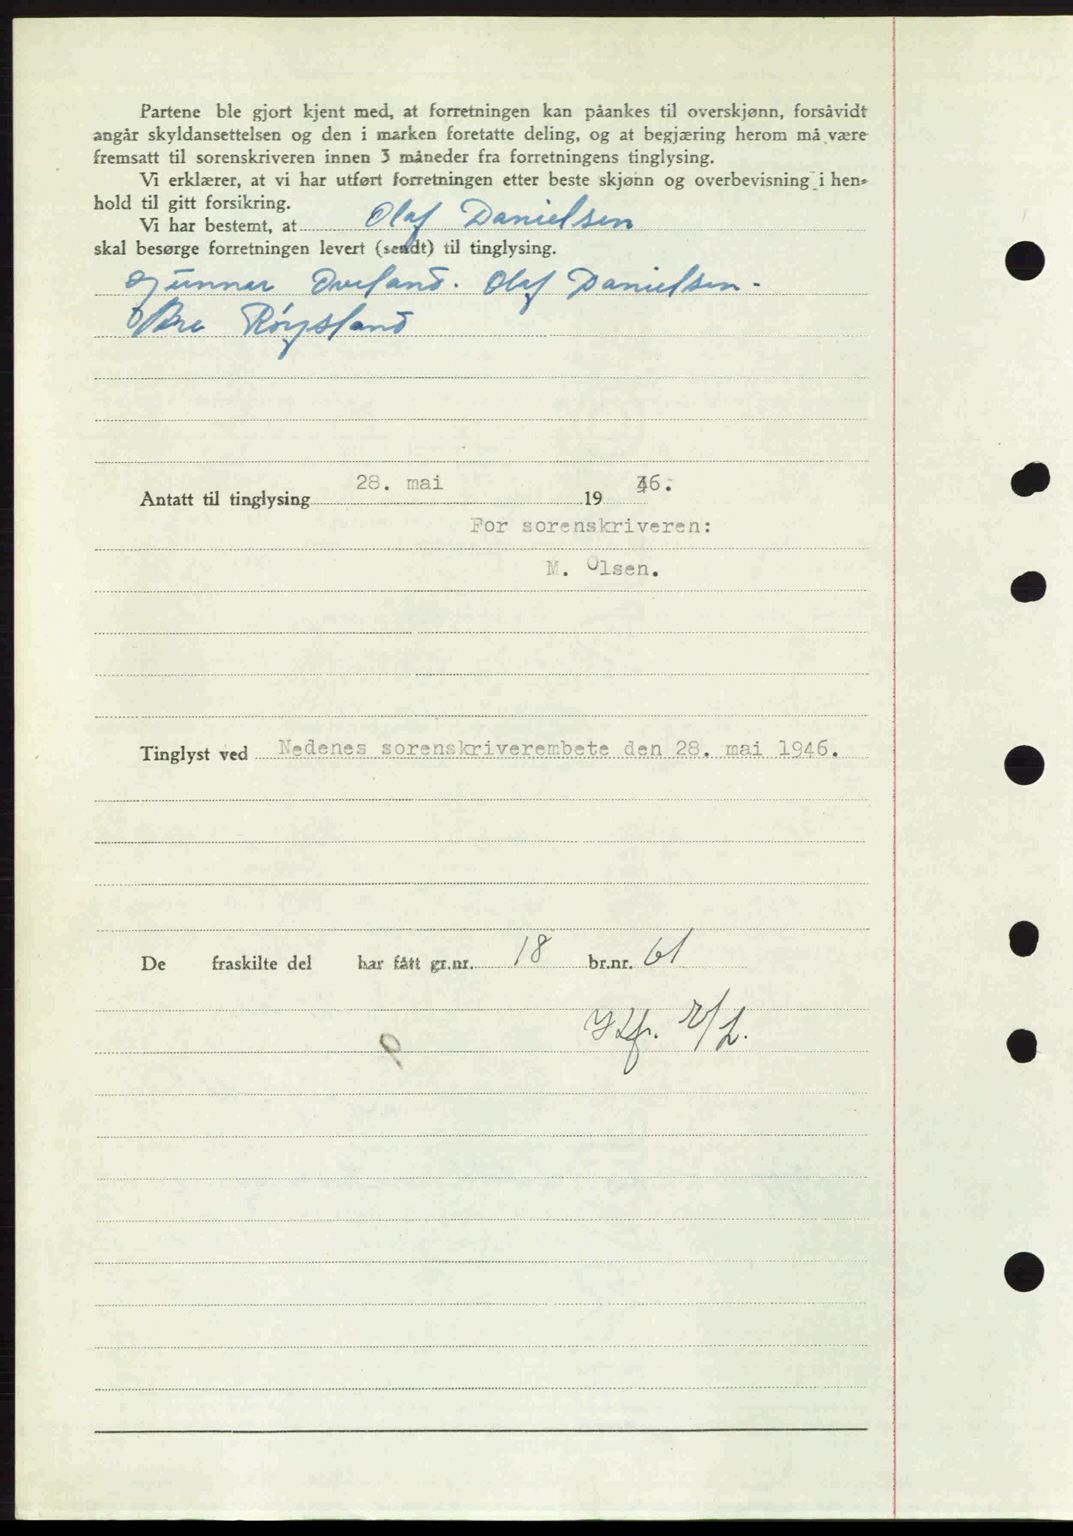 Partene ble gjort kjent med, at forretningen kan påankes til overskjønn, forsåvidt
angår skyldansettelsen og den i marken foretatte deling, og at begjæring herom må være
fremsatt til sorenskriveren innen 3 måneder fra forretningens tinglysing.
Vi erklærer, at vi har utført forretningen etter beste skjønn og overbevisning i hen=
hold til gitt forsikring.
Vi har bestemt, at Olaf Danielsen
skal besørge forretningen levert (sendt) til tinglysing.
Gunnar Øveland. Olaf Danielsen.
Røysland
Antatt til tinglysing 28. mai 1946.
For sorenskriveren:
M. Olsen.
Tinglyst ved Nedenes sorenskriverembete den 28. mai 1946.
De fraskilte del har fått gr.nr. 18 br.nr. 61